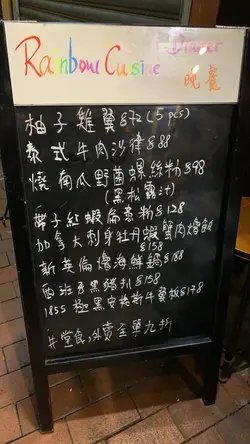 Rainbow Cusine
Dinner
晚餐
柚子雞翼 $72 (5 pcs)
泰式牛肉沙律 $88
燒南瓜野菌螺絲粉 $98
(黑松露汁)
帶子紅蝦扁意粉 $128
加拿大刺身牡丹蝦蟹肉燴飯
$158
新英倫燴海鮮鍋 $188
西班牙黑豬扒 $158
1855 極黑安格斯牛翼板 $178
#堂食,外賣全單九折